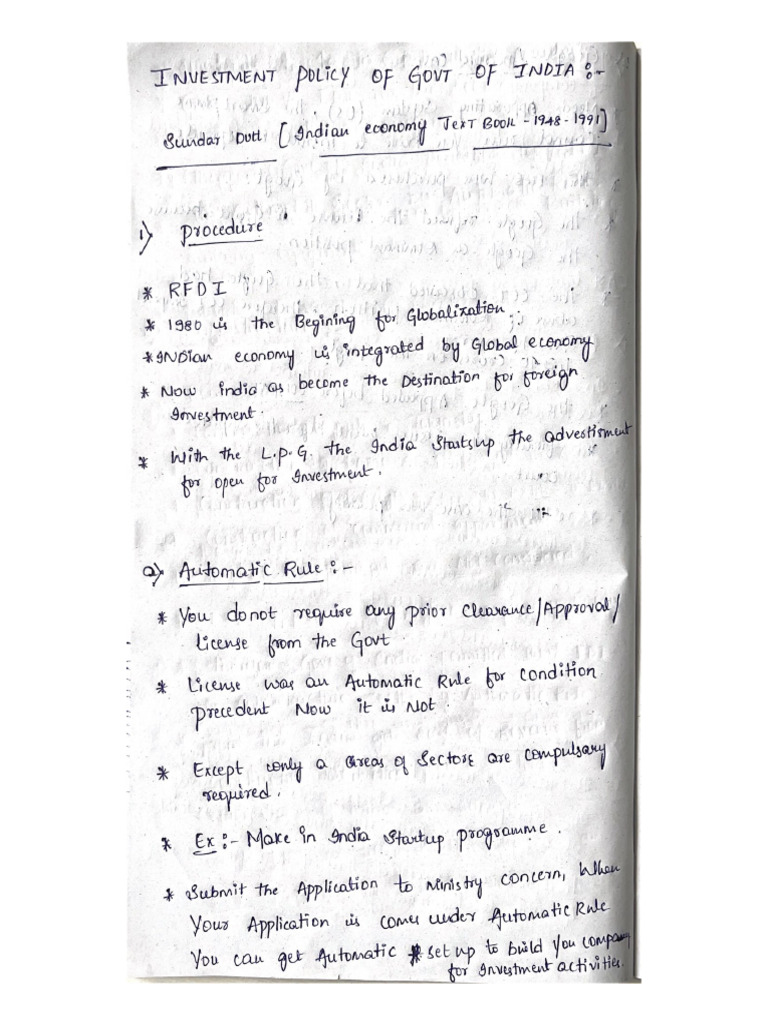 INVESTMENT POLICY OF GOVT OF INDIA :-
Sundar Dutt [Indian economy TEXT BOOK - 1948 - 1991]
1) procedure
* RFDI
* 1980 is the Begining for Globalization
* INDian economy is integrated by Global economy
* Now india as become the Destination for foreign
Investment.
* With the L.P.G. the India Starts up the advestisment
for open for Investment.
a) Automatic Rule :-
* You donot require any prior clearance/Approval/
License from the Govt.
* License was an Automatic Rule for condition
precedent Now it is Not.
* Except only a areas of Sectors are compulsary
required.
* Ex :- Make in India Startup programme.
* Submit the Application to Ministry concern, When
Your Application is comes under Automatic Rule
You can get Automatic * set up to build you company
for Investment activities.